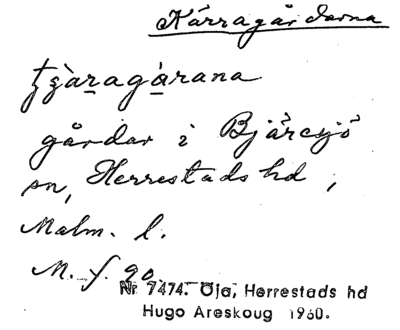 Kärragårdarna
gårdar i Bjäresjö
sn, Herrestads hd,
Malm. l.
M. f. 90.
Nr 7474. Öja, Herrestads hd
Hugo Areskoug 1930.